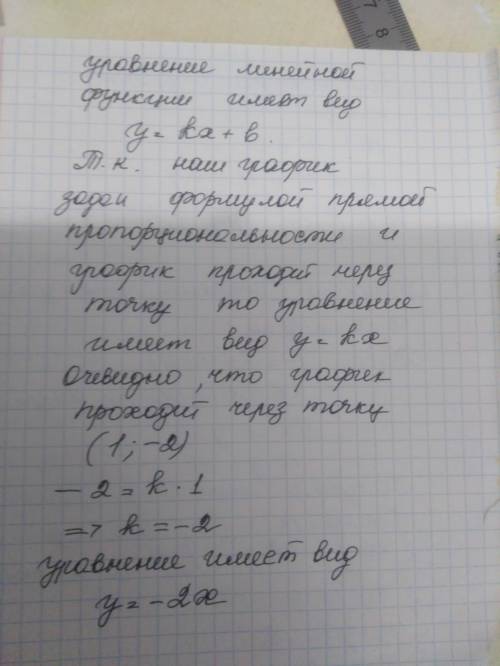 7 8
уравнение линейной
функции имеет вид
y = kx + b.
Т.к. наш график
задан формулой прямой
пропорциональности и
график проходит через
точку то уравнение
имеет вид y = kx
Очевидно, что график
проходит через точку
(1; -2)
- 2 = k · 1
=> k = -2
уравнение имеет вид
y = -2x